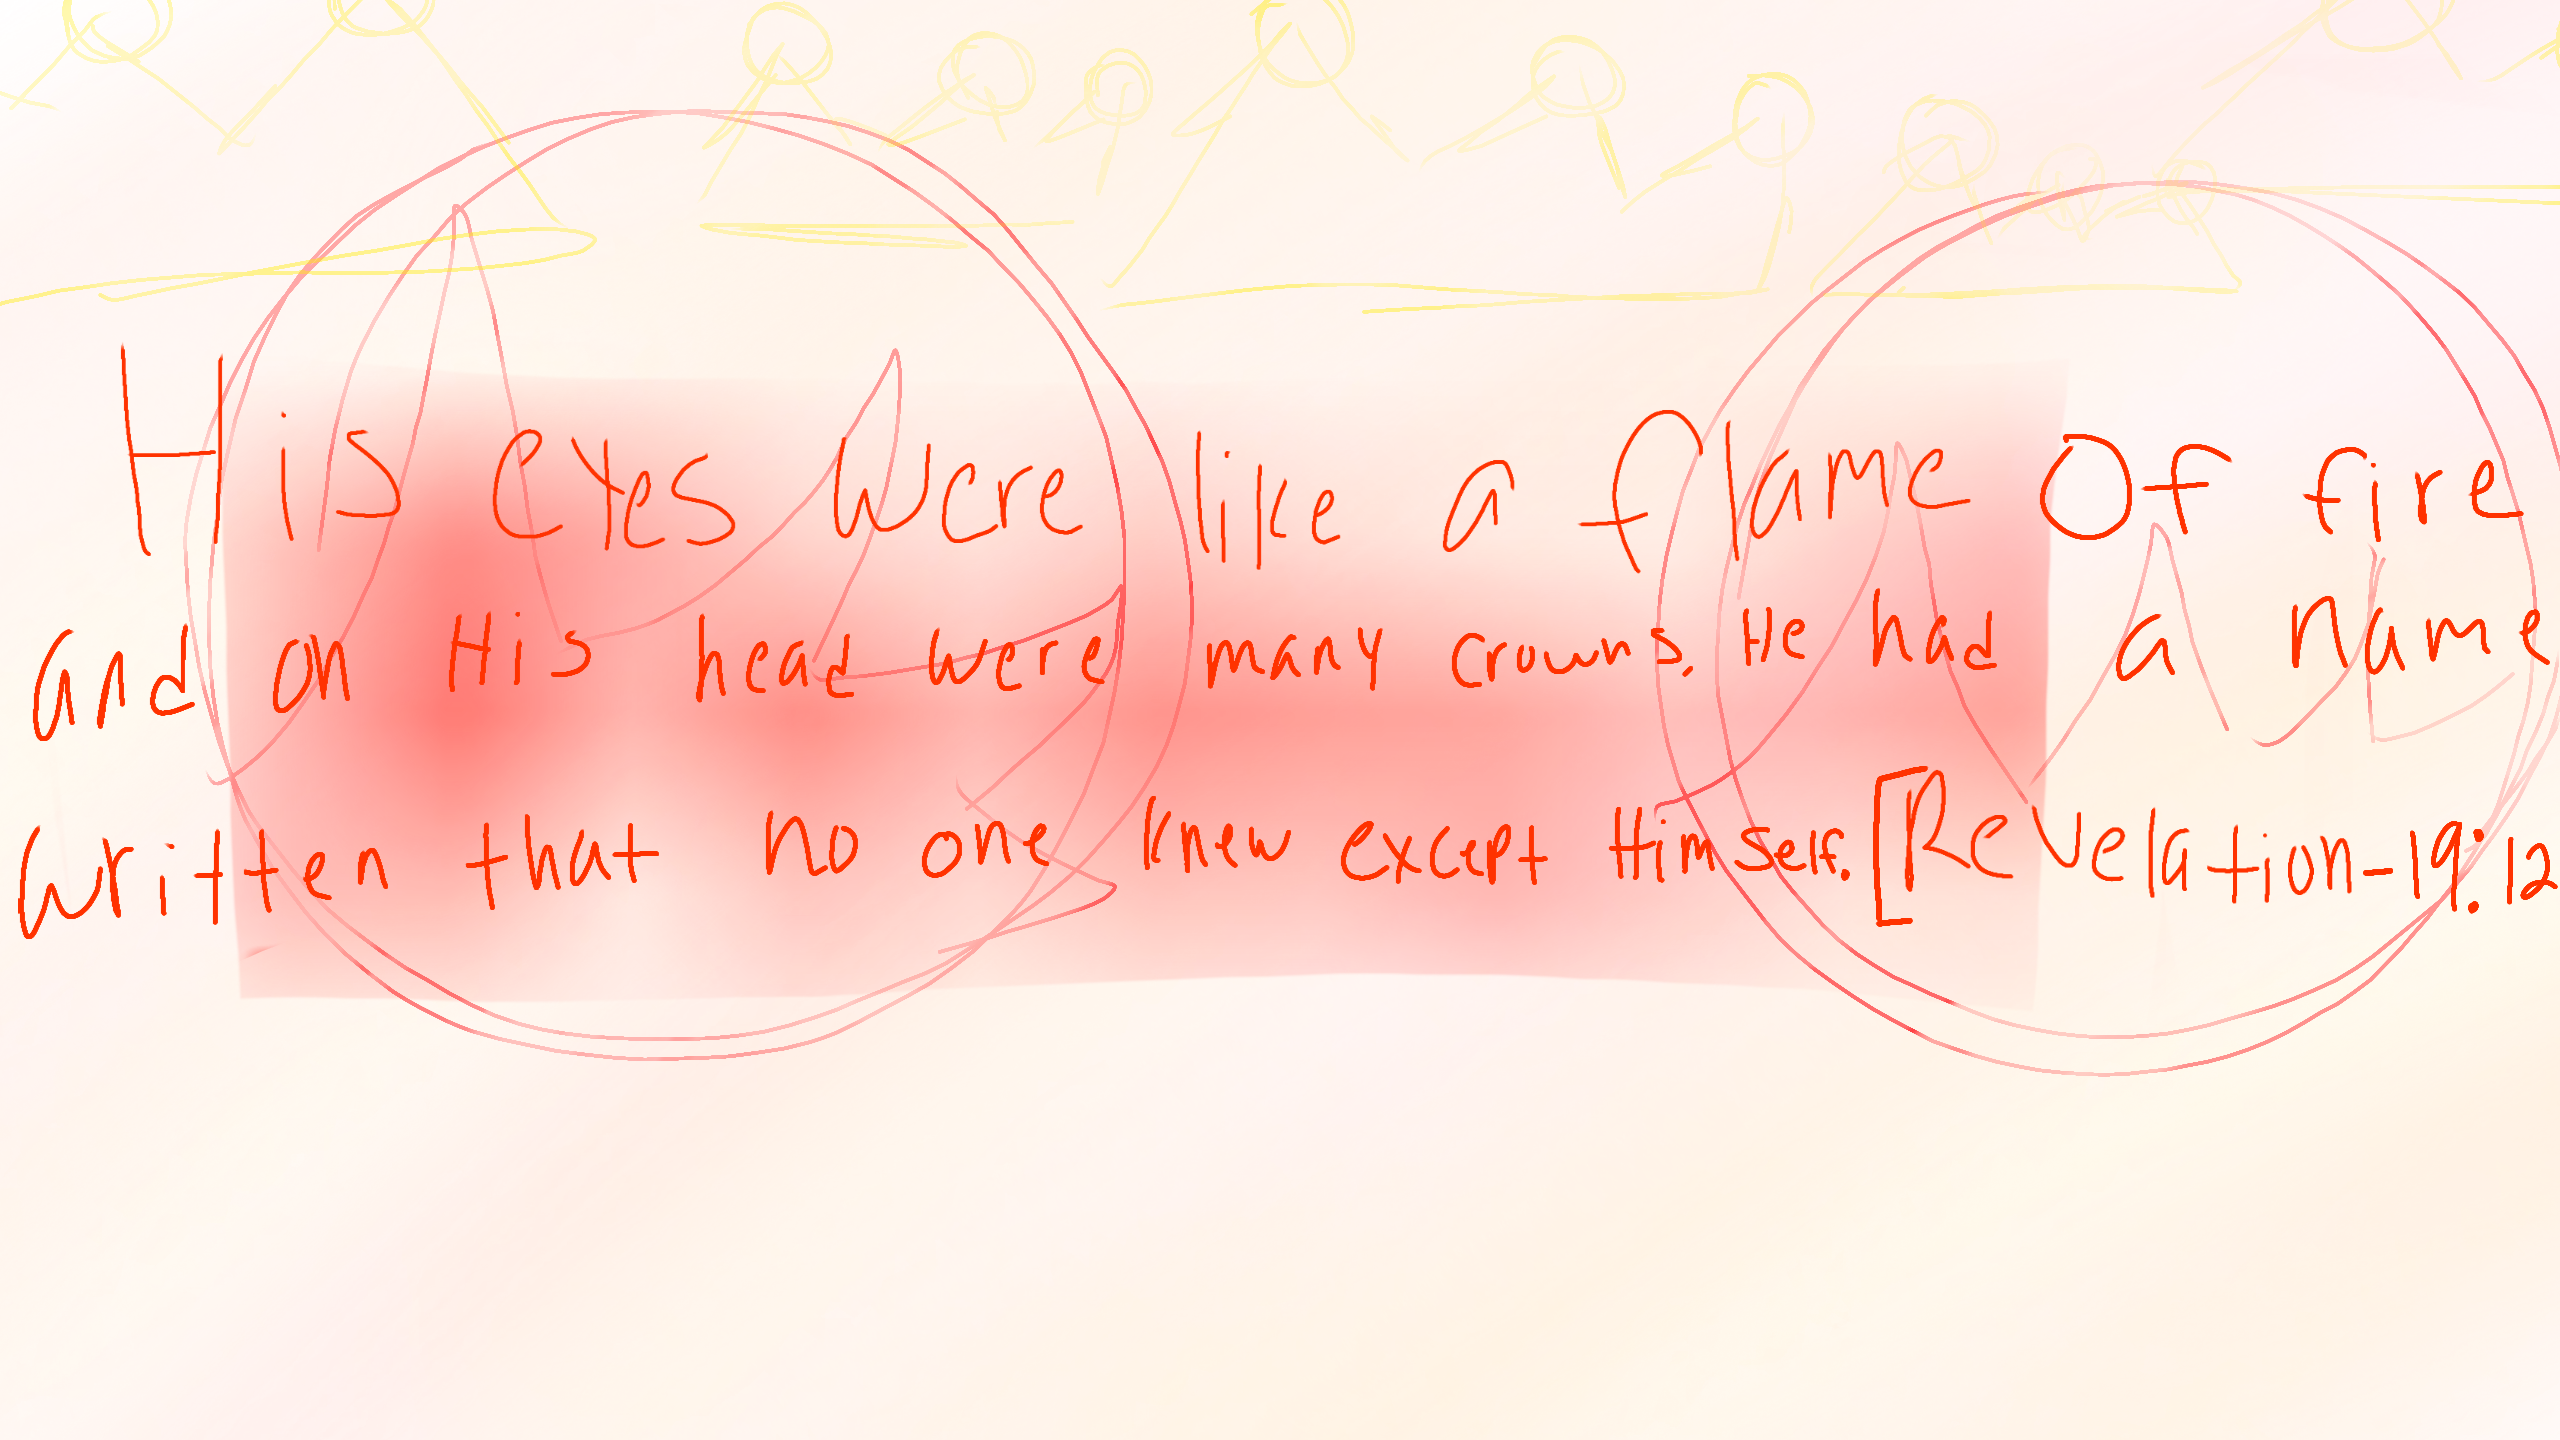 His eyes were like a flame Of fire
and on His head were many crowns. He had a name
written that no one knew except Himself. [Revelation-19:12